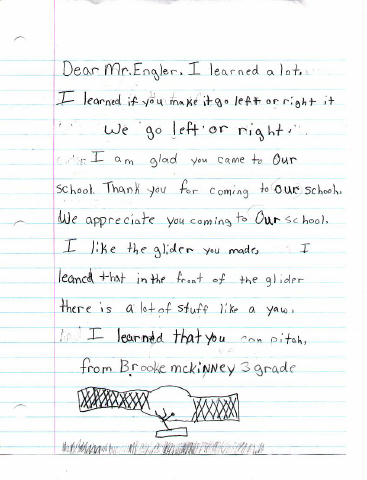 Dear Mr. Engler. I learned a lot.
I learned if you make it go left or right it
We go left or right.
I am glad you came to Our
school. Thank you for coming to our school.
We appreciate you coming to Our school.
I like the glider you made, I
leaned that in the front of the glider
there is a lot of stuff like a yaw.
I learned that you can pitch,
from Brooke mckiNNey 3 grade